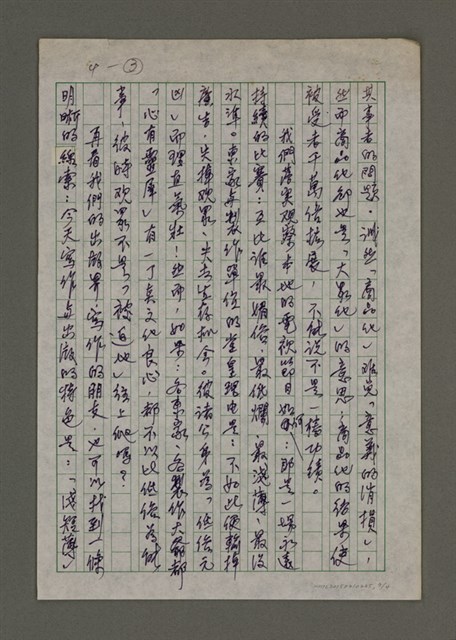 4-③
其事者的問題。訓些「商品化」唯見「意義的消損」,
然而商品化卻也是「大眾化」的意思;商品化的結果使
被受者千萬倍拓展,不能說不是一樁功績。
我們落實觀察本地的電視節目如何:即是一場永遠
持續的比賽:互比誰最媚俗、最低爛、最淺薄、最沒
水準。東家與製作單位的堂皇理由是:不如此便輸掉
廣告、失掉觀眾、失去生存機會。彼諸公弟為「低俗元
凶」而理直氣壯!然而,如果:各東家、各製作大爺都
「心有靈犀」有一丁真文化良心,都不以比低俗為能
事,彼時觀眾不是「被迫」往上爬嗎?
再看我們的出版界寫作的朋友,也可以找到一條
明晰的線索:今天寫作與出版的特色是:「淺短薄」